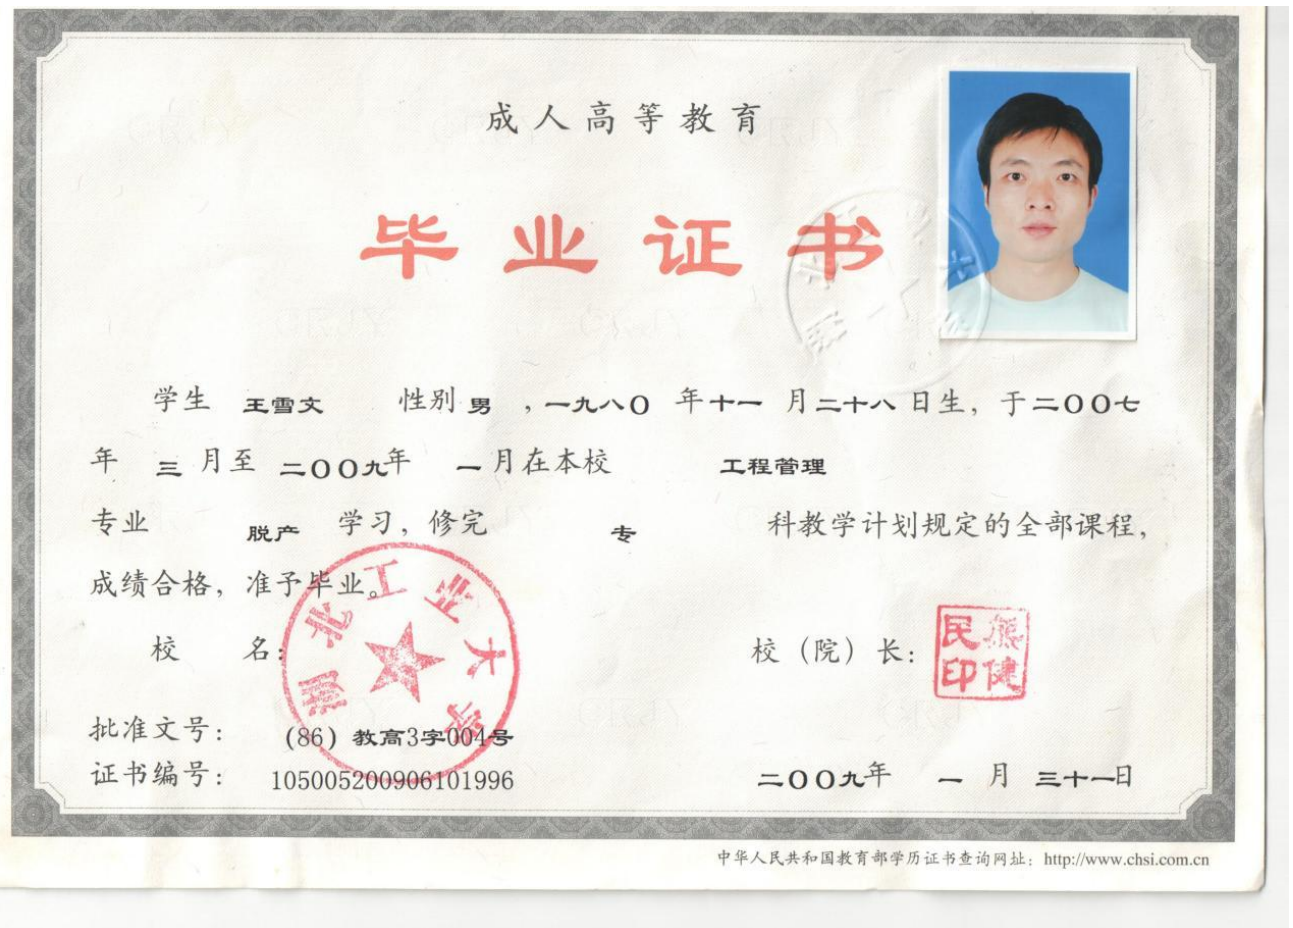 成人高等教育
毕业证书
学生 王雪文 性别 男 ,一九八〇 年十一 月二十八 日生, 于二〇〇七
年 三 月至 二〇〇九年 一月在本校 工程管理
专业 脱产 学习, 修完 专 科教学计划规定的全部课程,
成绩合格, 准予毕业。
校 名:
湖北工业大学
校（院）长:
熊健民印
批准文号: (86) 教高3字004号
证书编号: 105005200906101996
二〇〇九年 一 月 三十一日
中华人民共和国教育部学历证书查询网址: http://www.chsi.com.cn